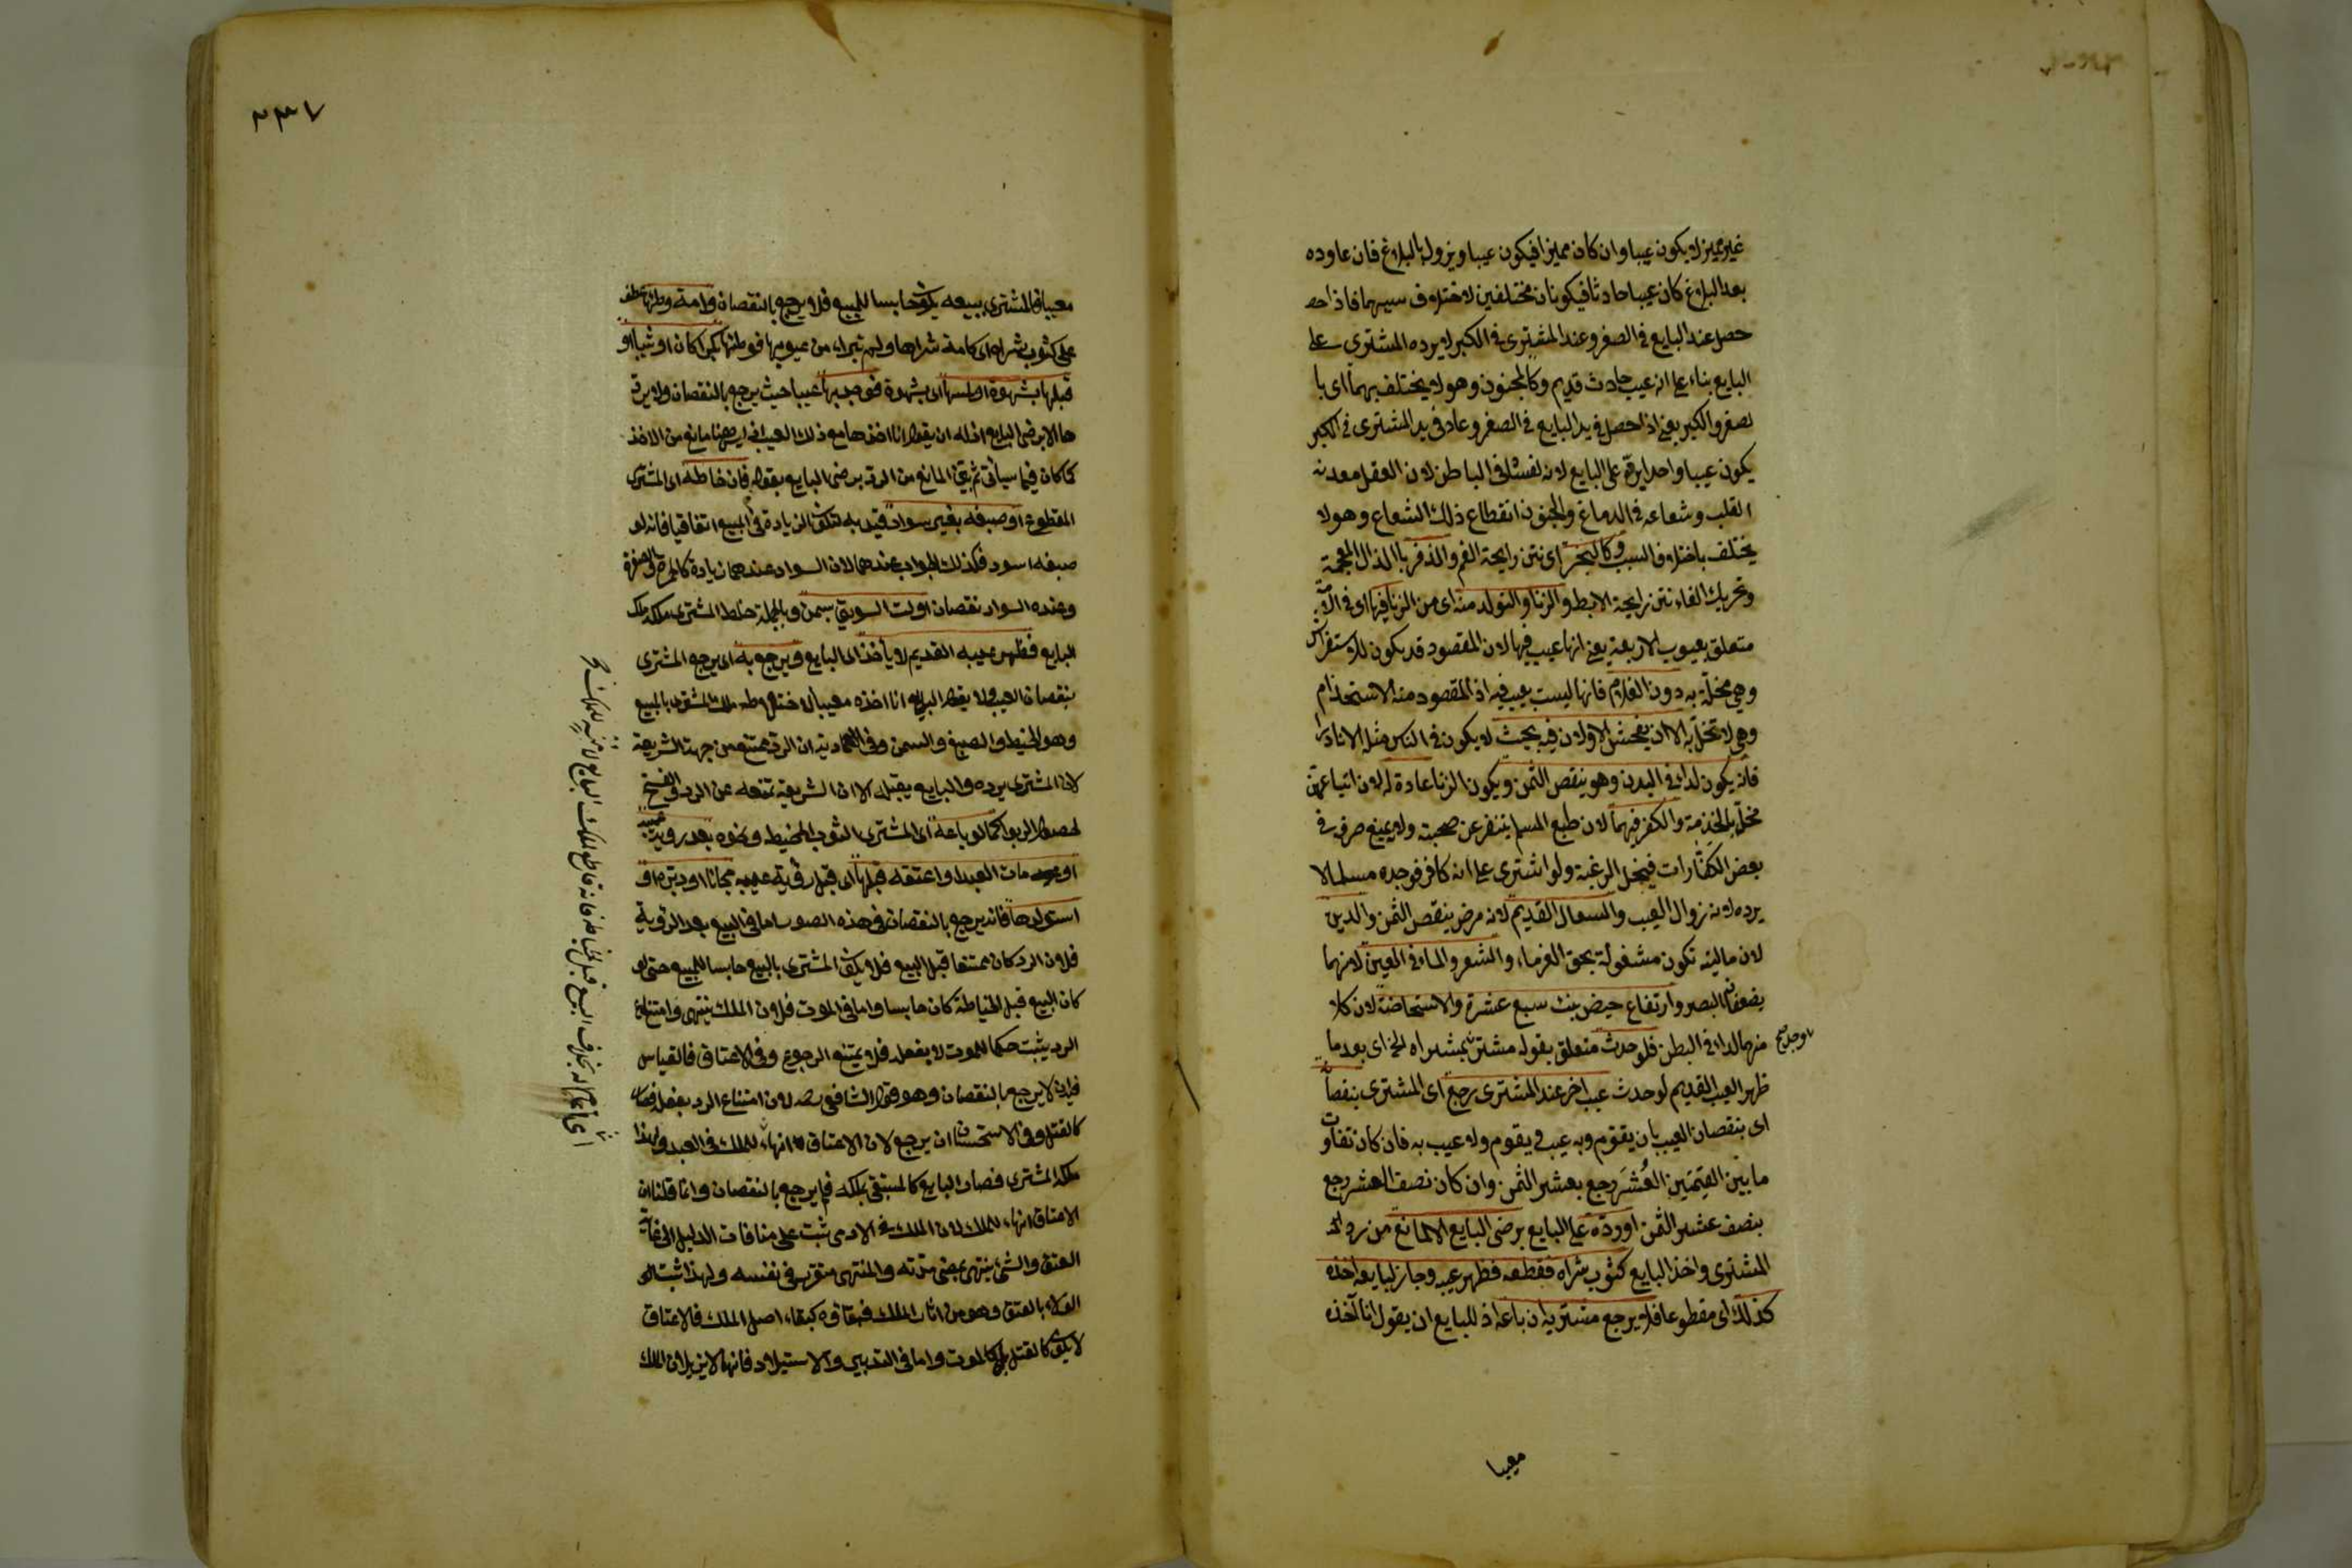 غير مميز لا يكون عيبا وان كان مميزا فيكون عيبا ويزول بالبلاغ فان عاوده
بعد البلاغ كان عيبا حادثا فيكونان مختلفين لاختلاف سببهما فاذا حصـ
حصل عند البايع في الصغر وعند المشتري في الكبر لا يرده المشتري على
البايع بناء على انه عيب حادث قديم وكالجنون وهو لا يختلف بهما اى با
لصغر والكبر يعني اذا حصل في يد البايع في الصغر وعاد في يد المشتري في الكبر
يكون عيبا واحدا يرده على البايع لانه لفساد في الباطن لان العقل معدنه
القلب وشعاعه في الدماغ والجنون انقطاع ذلك الشعاع وهو لا
يختلف باختلاف السبب وكالبخر اى نتن رايحة الفم والذفر بالذال المعجمة
وتحريك الفاء نتن رايحة الابط والزنا والتولد منه اى من الزنا فيها اى في الامة
متعلق بعيوب الاربعة يعني انها عيب فيها لان المقصود قد يكون للاستفراش
وهي مخلة به دون الغلام فانها ليست بعيب فيه اذ المقصود منه الاستخدام
وهي لا تخل به الا ان يفحش الاولان فيه بحيث لا يكون في الناس مثله الا نادرا
فانه يكون لداء في البدن وهو ينقص الثمن ويكون الزنا عادة له لان اتباعهن
مخل بالخدمة والكفر فيهما لان طبع المسلم يتنفر عن صحبته ولا يمنع صرفه في
بعض الكفارات فيخل الرغبة ولو اشترى على انه كافر فوجده مسلما لا
يرده لانه زوال العيب والسعال القديم لانه مرض ينقص الثمن والدين
لان ماليته تكون مشغولة بحق الغرماء والشعر والماء في العين لانهما
يضعفان البصر وارتفاع حيض بنت سبع عشرة والاستحاضة لان كلا
منهما لداء في البطن فلو حدث متعلق بقوله مشتر بمشراه الخ اى بعد ما
ظهر العيب القديم لو حدث عيب اخر عند المشتري رجع اى المشتري بنقصا
اى بنقصان العيب بان يقوم وبه عيب ويقوم ولا عيب به فان كان تفاوت
ما بين القيمتين العُشَر رجع بعشر الثمن وان كان نصف العشر رجع
بنصف عشر الثمن او رده على البايع برضى البايع الا لمانع من رد
المشتري واخذ البايع كثوب شراه فقطعه فظهر عيبه وجاز لبايعه اخذه
كذلك اى مقطوعا فلا يرجع مشتريه ان باعه اذ للبايع ان يقول انا آخذه
معيبا
٢٣٧
معيبا فالمشتري ببيعه يكون حابسا للمبيع فلا يرجع بالنقصان وامة وطئها عطف
على كثوب شراه اى كامة شراها ولم تبراء من عيوبها فوطئها بكرا كان او ثيبا او
قبلها بشهوة او لمسها اى بشهوة فوجد بها عيبا حيث يرجع بالنقصان ولا يرد
ها الا برضى البايع اذ له ان يقول انا اخذها مع ذلك العيب اذ ليس هنا مانع من الاخذ
كما كان فيما سياتي ثم بين المانع من الرد برضى البايع بقوله فان خاطه اى المشتري
المقطوع او صبغه بغير سواد قيد به لتكون الزيادة في المبيع اتفاقيا فانه لو
صبغه اسود فكذلك الجواب عندهما لان السواد عندهما زيادة كالحمرة والصفرة
وعنده السواد نقصان او لت السويق بسمن وبالجملة خلط المشتري ملكه بملك
البايع فظهر عيبه القديم لا ياخذه اى البايع ويرجع به اى يرجع المشتري
بنقصان العيب ولا يقول البايع انا اخذه معيبا لاختلاط ملك المشتري بالمبيع
وهو الخيط والصبغ والسمن وفي العمادية ان الرد ممتنع من جهة الشريعة
لان المشتري يرده والبايع يقبله الا ان الشريعة تمنعه عن الرد والفسخ
لحصول الربوا كما لو باعه اى المشتري الثوب المخيط ونحوه بعد روية عيبه
او مات العبد او اعتقه قبلها اى قبل رؤية عيبه مجانا او دبره او
استولدها فانه يرجع بالنقصان في هذه الصور اما في البيع بعد الروية
فلان الرد كان ممتنعا قبل البيع فلا يكون المشتري بالبيع حابسا للمبيع حتى لو
كان البيع قبل الخياطة كان حابسا واما في الموت فلان الملك ينتهي وامتناع
الرد يثبت حكما للموت لا بفعله فلا يمتنع الرجوع وفي الاعتاق فالقياس
فيه ان لا يرجع بالنقصان وهو قول الشافعي رحمه لان امتناع الرد بفعله فصار
كالقتل وفي الاستحسان ان يرجع لان الاعتاق انهاء للملك في العبد ولهذا
ملكه المشتري فصار البايع كالمستبقى بملكه فيرجع بالنقصان وانما قلنا ان
الاعتاق انهاء للملك لان الملك في الادمي ثبت على منافات الدليل الى غاية
العتق والشئ ينتهي بمضي مدته والمنتهي متقرر في نفسه ولهذا ثبت له
الولاء بالعتق وهو من اثار الملك فبقاؤه كبقاء اصل الملك فالاعتاق
لا يكون كالقتل بل كالموت واما في التدبير والاستيلاد فانهما لا يزيلان الملك